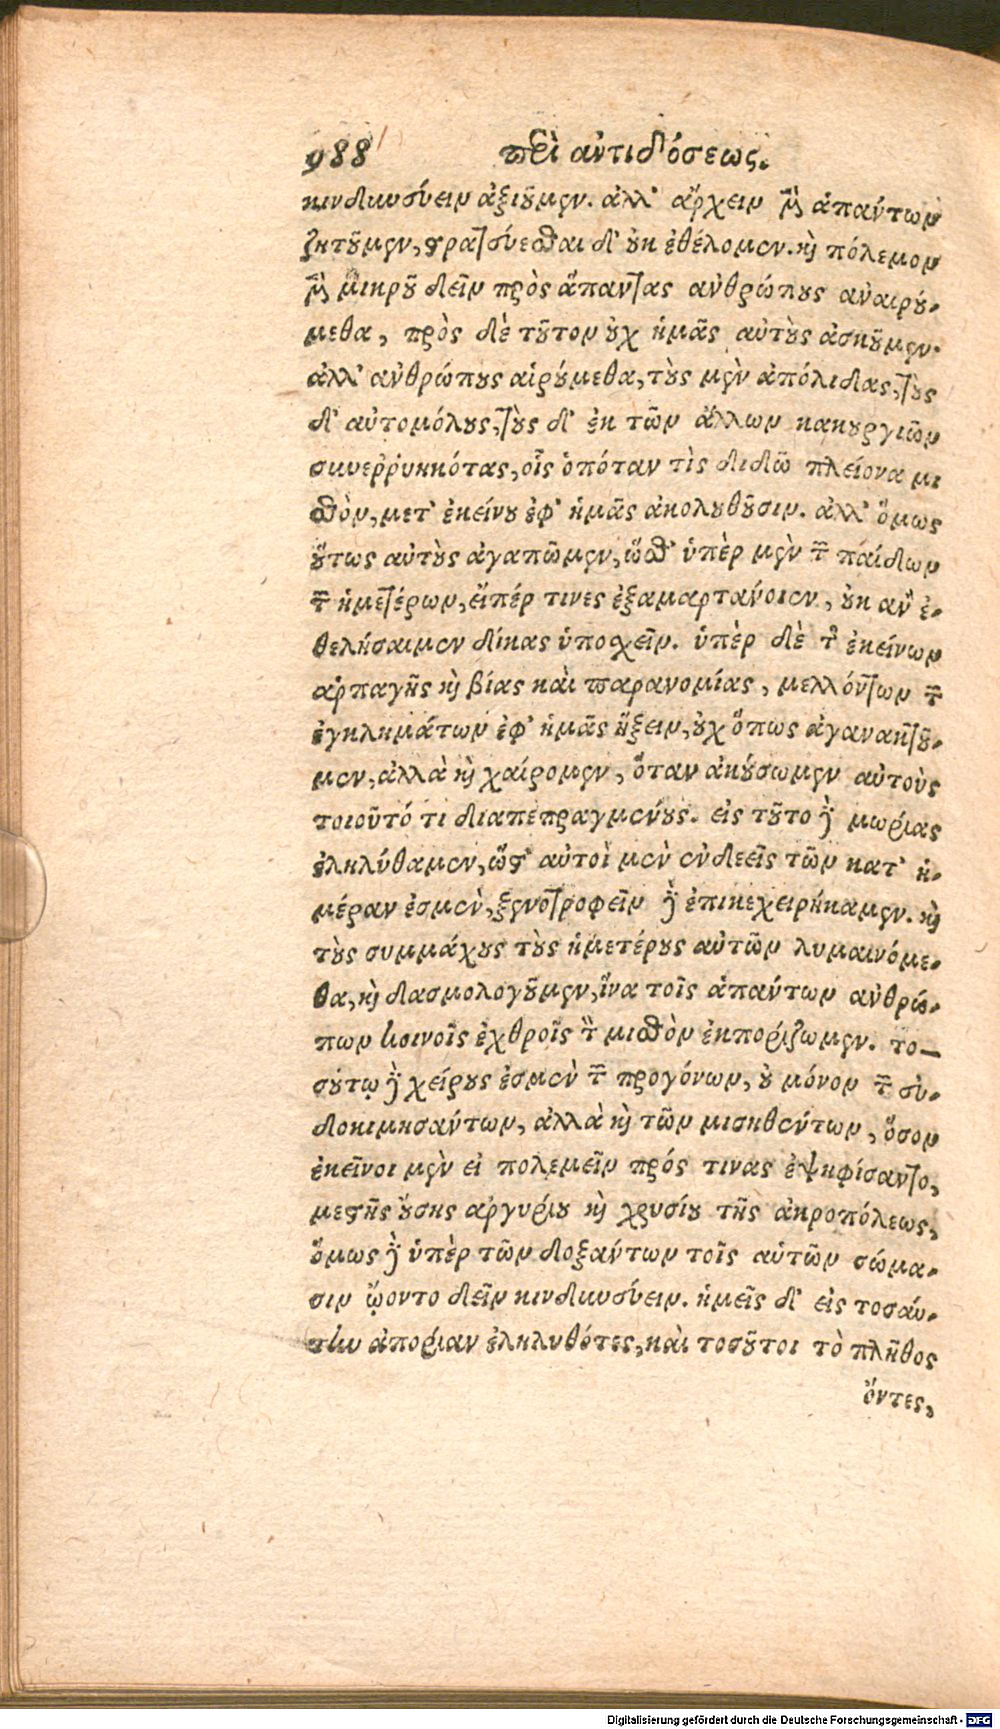 988 περὶ ἀντιδόσεως.
κινδυνεύειν ἀξιοῦμεν. ἀλλ' ἄρχειν μὲν ἁπάντων
ζητοῦμεν, στρατεύεσθαι δ' οὐκ ἐθέλομεν. καὶ πόλεμον
μὲν μικροῦ δεῖν πρὸς ἅπαντας ἀνθρώπους ἀναιρού-
μεθα, πρὸς δὲ τοῦτον οὐχ ἡμᾶς αὐτοὺς ἀσκοῦμεν.
ἀλλ' ἀνθρώπους αἱρούμεθα, τοὺς μὲν ἀπόλιδας, τοὺς
δ' αὐτομόλους, τοὺς δ' ἐκ τῶν ἄλλων κακουργιῶν
συνερρυηκότας, οἷς ὁπόταν τὶς διδῶ πλείονα μι
σθὸν, μετ' ἐκείνου ἐφ' ἡμᾶς ἀκολουθοῦσιν. ἀλλ' ὅμως
οὕτως αὐτοὺς ἀγαπῶμεν, ὥσθ' ὑπὲρ μὲν τῶν παίδων
τῶν ἡμετέρων, εἴπέρ τινες ἐξαμαρτάνοιεν, οὐκ ἂν ἐ-
θελήσαιμεν δίκας ὑποσχεῖν. ὑπὲρ δὲ τῆς ἐκείνων
ἁρπαγῆς καὶ βίας καὶ παρανομίας, μελλόντων τῶν
ἐγκλημάτων ἐφ' ἡμᾶς ἥξειν, οὐχ ὅπως ἀγανακτοῦ-
μεν, ἀλλὰ καὶ χαίρομεν, ὅταν ἀκούσωμεν αὐτοὺς
τοιοῦτό τι διαπεπραγμένους. εἰς τοῦτο γὰρ μωρίας
ἐληλύθαμεν, ὥστ' αὐτοὶ μὲν ἐνδεεῖς τῶν κατ' ἡ-
μέραν ἐσμὲν, ξενοτροφεῖν γὰρ ἐπικεχειρήκαμεν. καὶ
τοὺς συμμάχους τοὺς ἡμετέρους αὐτῶν λυμαινόμε-
θα, καὶ δασμολογοῦμεν, ἵνα τοῖς ἁπάντων ἀνθρώ-
πων κοινοῖς ἐχθροῖς τὸν μισθὸν ἐκπορίζωμεν. το-
σούτῳ γὰρ χείρους ἐσμὲν τῶν προγόνων, οὐ μόνον τῶν εὐ-
δοκιμησάντων, ἀλλὰ καὶ τῶν μισηθέντων, ὅσον
ἐκεῖνοι μὲν εἰ πολεμεῖν πρός τινας ἐψηφίσαντο,
μεστῆς οὔσης ἀργυρίου καὶ χρυσίου τῆς ἀκροπόλεως,
ὅμως γὰρ ὑπὲρ τῶν δοξάντων τοῖς αὑτῶν σώμα-
σιν ᾤοντο δεῖν κινδυνεύειν. ἡμεῖς δ' εἰς τοσαύ-
την ἀπορίαν ἐληλυθότες, καὶ τοσοῦτοι τὸ πλῆθος
ὄντες,
Digitalisierung gefördert durch die Deutsche Forschungsgemeinschaft - DFG